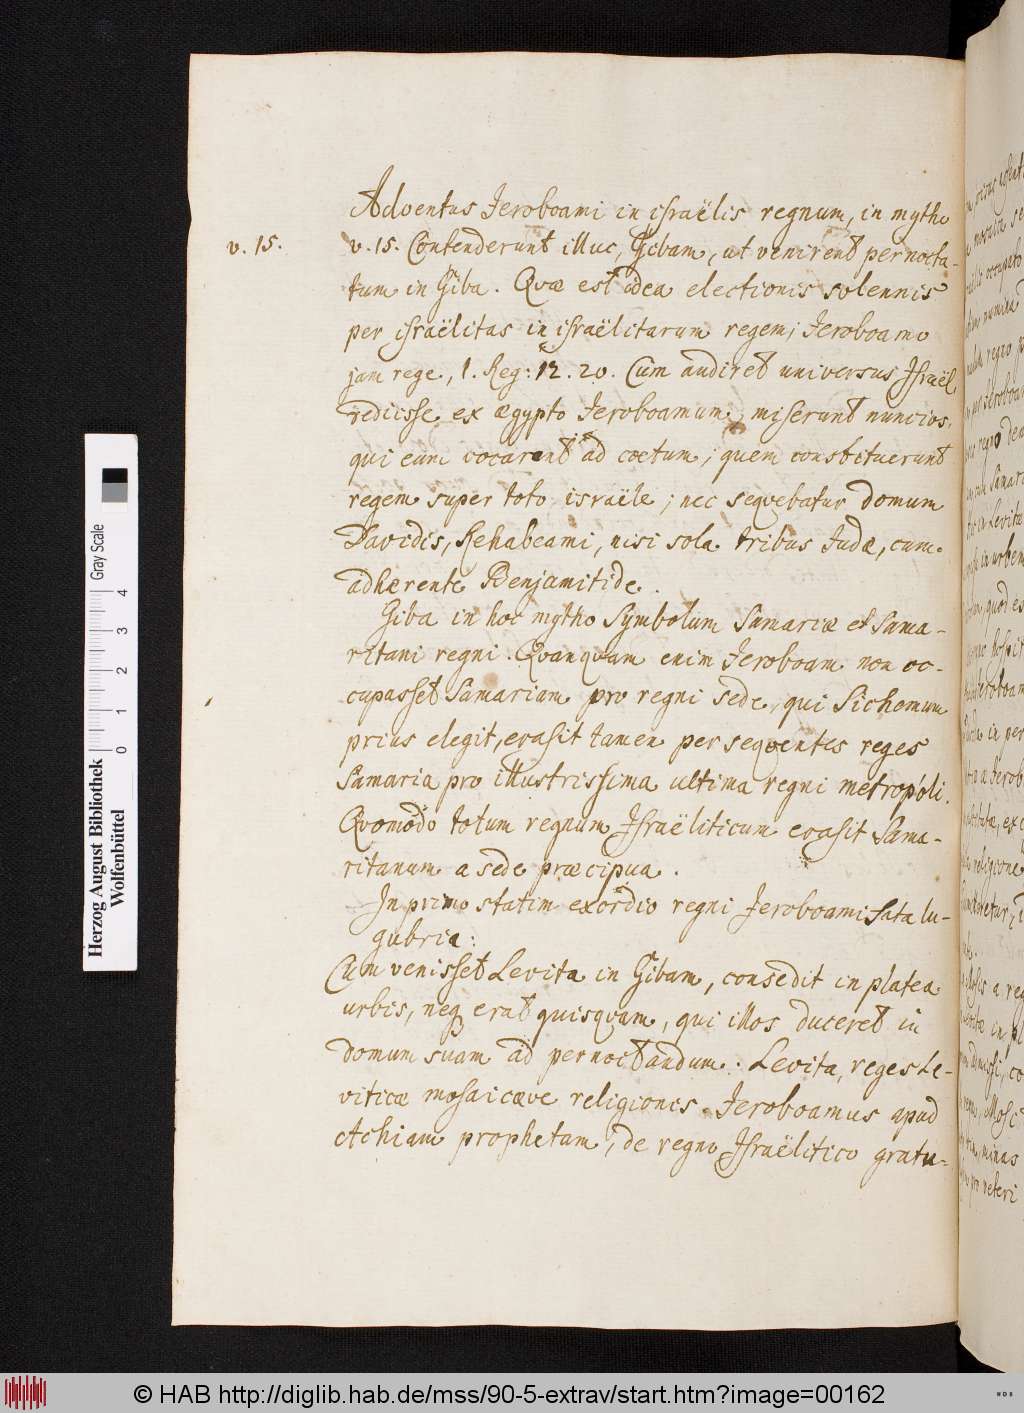 Adventus Jeroboami in israëlis regnum, in mytho
v. 15.
v. 15. Contenderunt illuc, Gibam, ut venirent pernocta-
tum in Giba. Quæ est idea electionis solennis
per israëlitas in israëlitarum regem, Jeroboamo
jam rege, 1. Reg: 12. 20. Cum audiret universus Israël,
rediisse ex ægypto Jeroboamum, miserunt nuncios,
qui eum vocarent ad coetum, quem constituerunt
regem super toto israële; nec sequebatur domum
Davidis, Rehabeami, nisi sola tribus Judæ, cum
adhærente Benjamitide.
Giba in hoc mytho Symbolum Samariæ et Sama-
ritani regni. Quanquam enim Jeroboam non oc-
cupasset Samariam pro regni sede, qui Sichemum
prius elegit, evasit tamen per sequentes reges
Samaria pro illustrissima ultima regni metropoli.
Quomodo totum regnum Israëliticum evasit Sama-
ritanum a sede præcipua.
In primo statim exordio regni Jeroboami fata lu-
gubria:
Cum venisset Levita in Gibam, consedit in platea
urbis, neq erat quisquam, qui illos duceret in
domum suam ad pernoctandum. Levita, reges Le-
viticæ mosaicæve religionis. Jeroboamus apud
Achiam prophetam, de regno Israëlitico gratu-
Herzog August Bibliothek
Wolfenbüttel
0 1 2 3 4
Gray Scale
© HAB http://diglib.hab.de/mss/90-5-extrav/start.htm?image=00162